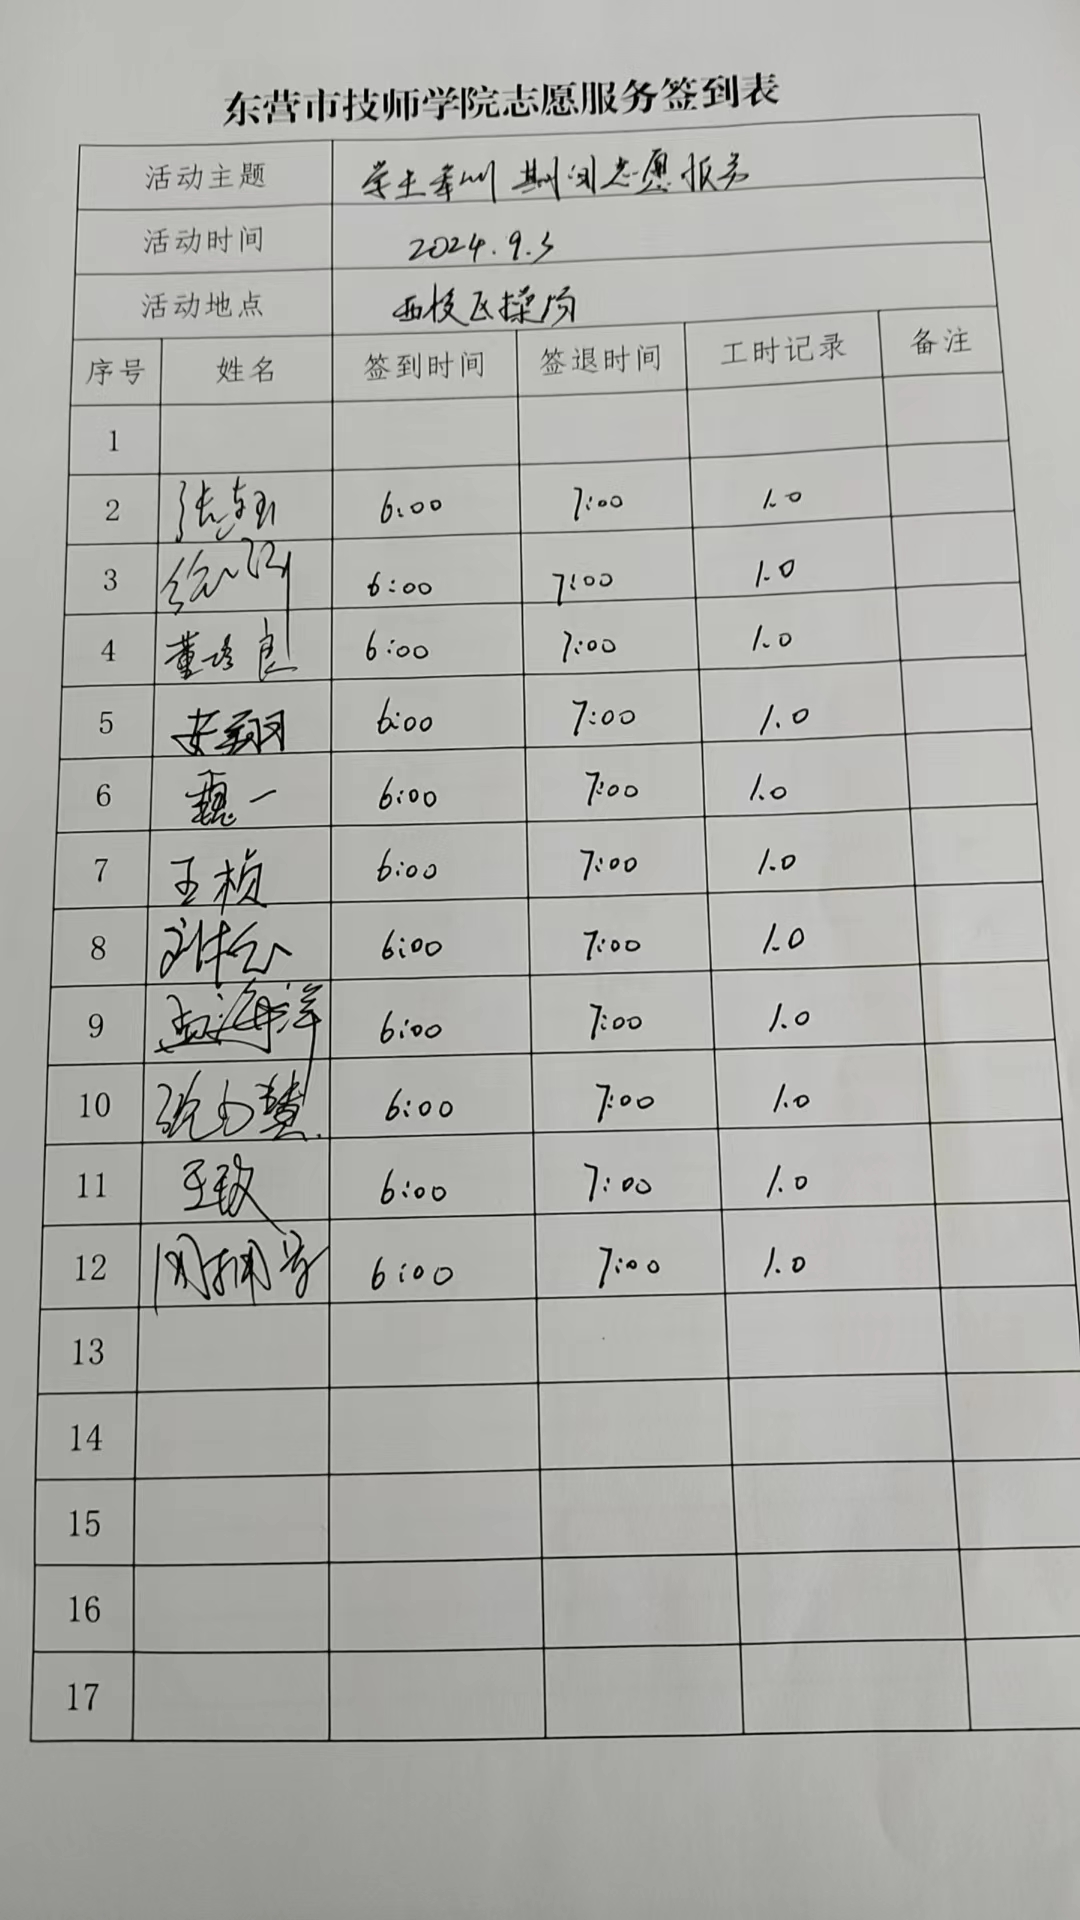 东营市技师学院志愿服务签到表
活动主题 学生军训期间志愿服务
活动时间 2024.9.3
活动地点 西校区操场
序号 姓名 签到时间 签退时间 工时记录 备注
1
2 6:00 7:00 1.0
3 6:00 7:00 1.0
4 6:00 7:00 1.0
5 安翔 6:00 7:00 1.0
6 魏一 6:00 7:00 1.0
7 王桢 6:00 7:00 1.0
8 6:00 7:00 1.0
9 孟海洋 6:00 7:00 1.0
10 6:00 7:00 1.0
11 王政 6:00 7:00 1.0
12 6:00 7:00 1.0
13
14
15
16
17